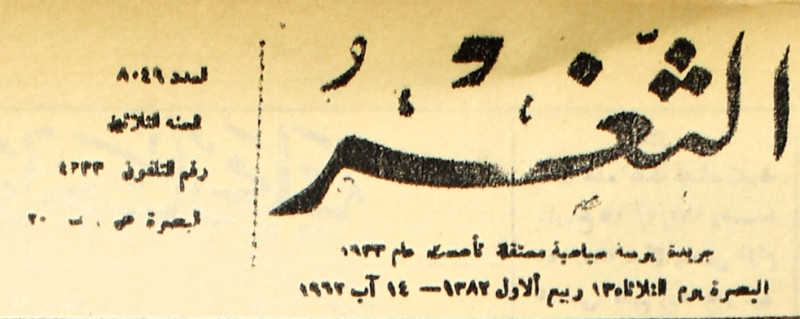 الثغر
جريدة يومية سياسية مستقلة تأسست عام ١٩٣٣
البصرة يوم الثلاثاء ١٣ ربيع الاول ١٣٨٢ — ١٤ آب ١٩٦٢
العدد ٨٠٤٩
السنه الثلاثون
رقم التلفون ٤٢٣٣
البصرة ص . ب ٣٠